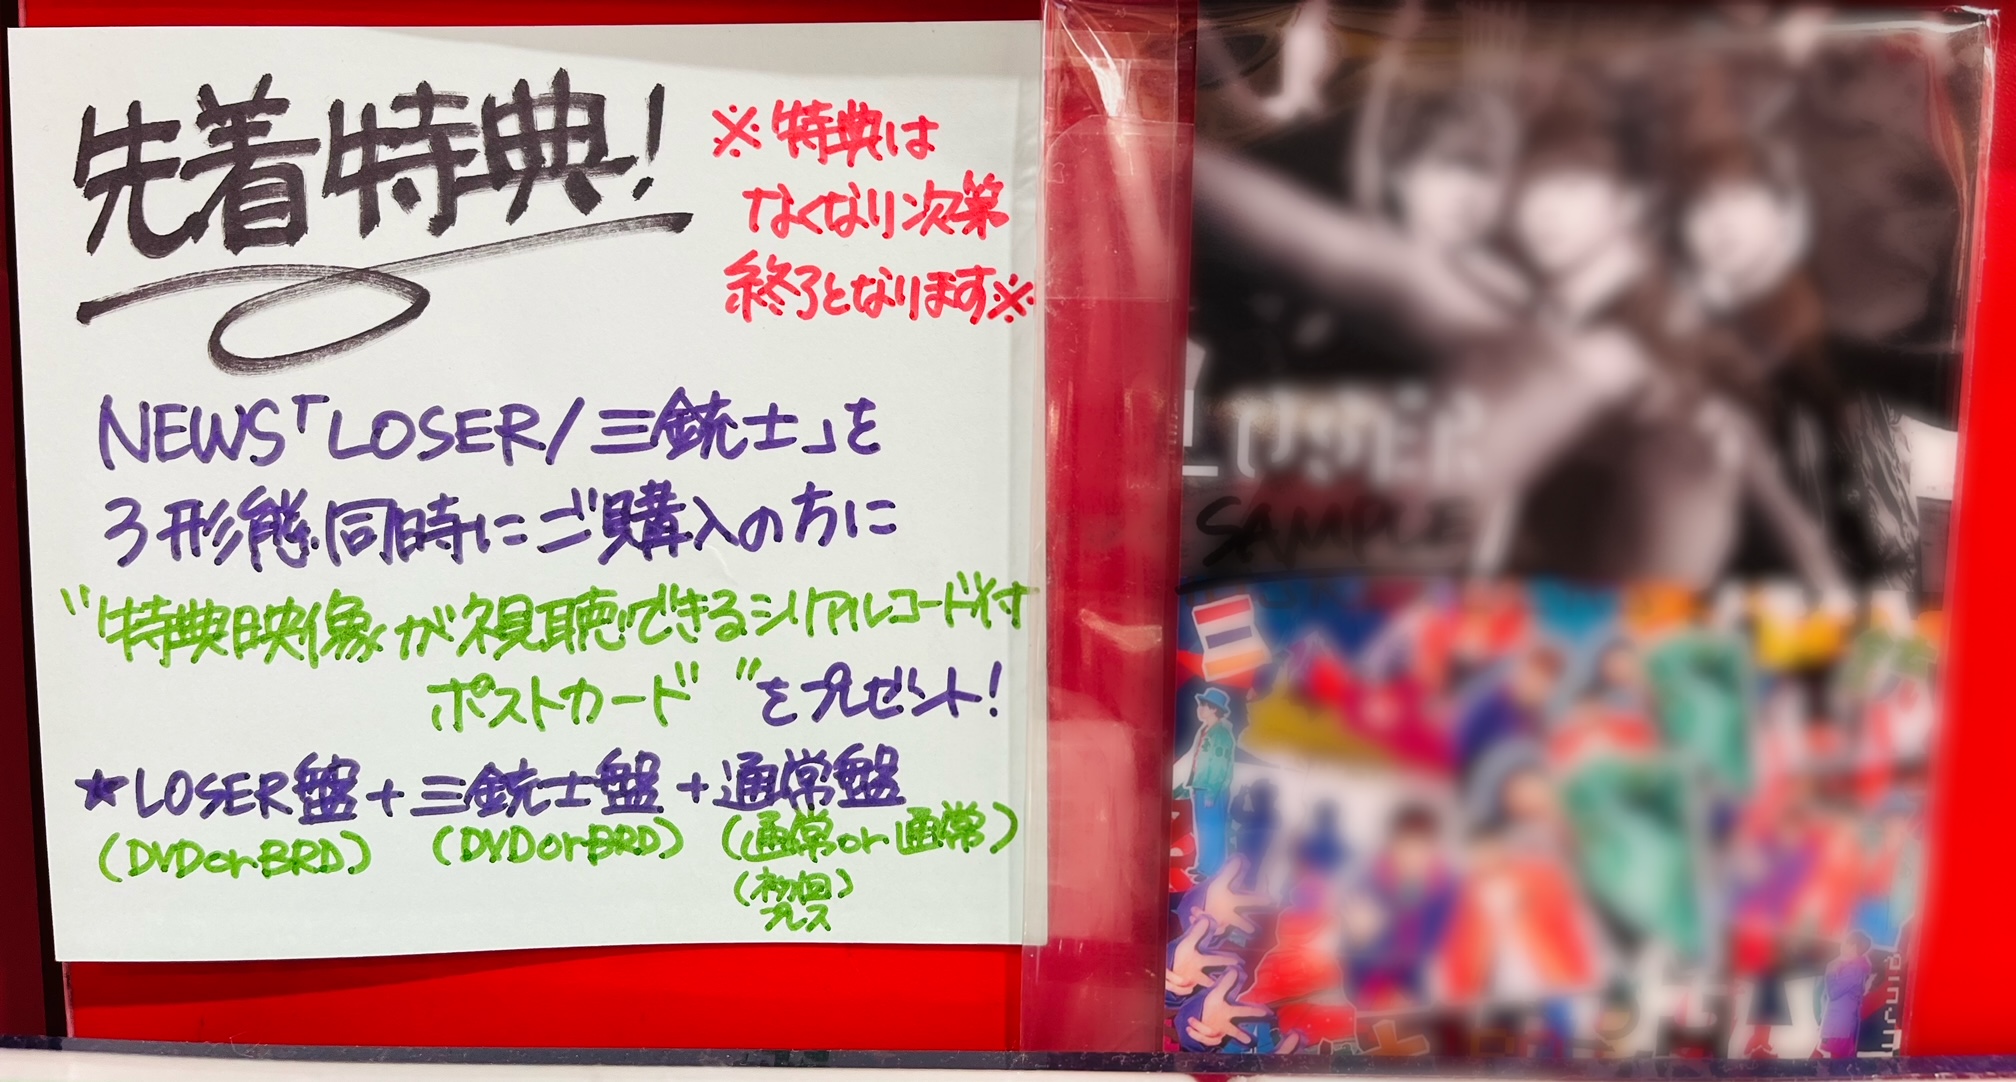 先着特典!
※特典は
なくなり次第
終了となります※
NEWS「LOSER/三銃士」を
3形態同時にご購入の方に
"特典映像が視聴できるシリアルコード付
ポストカード" "をプレゼント!
★LOSER盤+三銃士盤+通常盤
(DVDorBRD) (DVDorBRD) (通常or通常)
(初回)
プレス
LOSER
SAMPLE